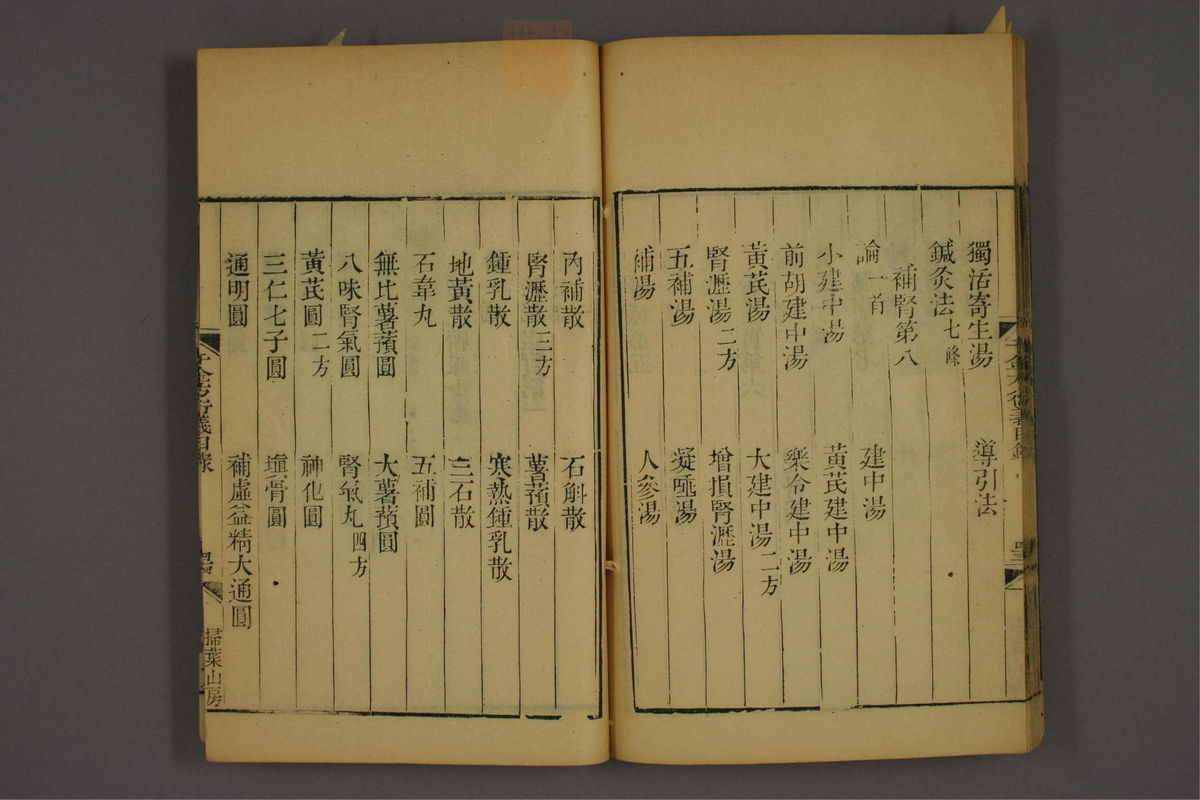 千金方衍義目錄
獨活寄生湯　導引法
鍼灸法七條
補腎第八
論一首　建中湯
小建中湯　黃芪建中湯
前胡建中湯　樂令建中湯
黃芪湯　大建中湯二方
腎瀝湯二方　增損腎瀝湯
五補湯　凝唾湯
補湯　人參湯
內補散　石斛散
腎瀝散三方　薯蕷散
鍾乳散　寒熱鍾乳散
地黃散　三石散
石韋丸　五補圓
無比薯蕷圓　大薯蕷圓
八味腎氣圓　腎氣丸四方
黃芪圓二方　神化圓
三仁七子圓　填骨圓
通明圓　補虛益精大通圓
千金方衍義目錄　掃葉山房